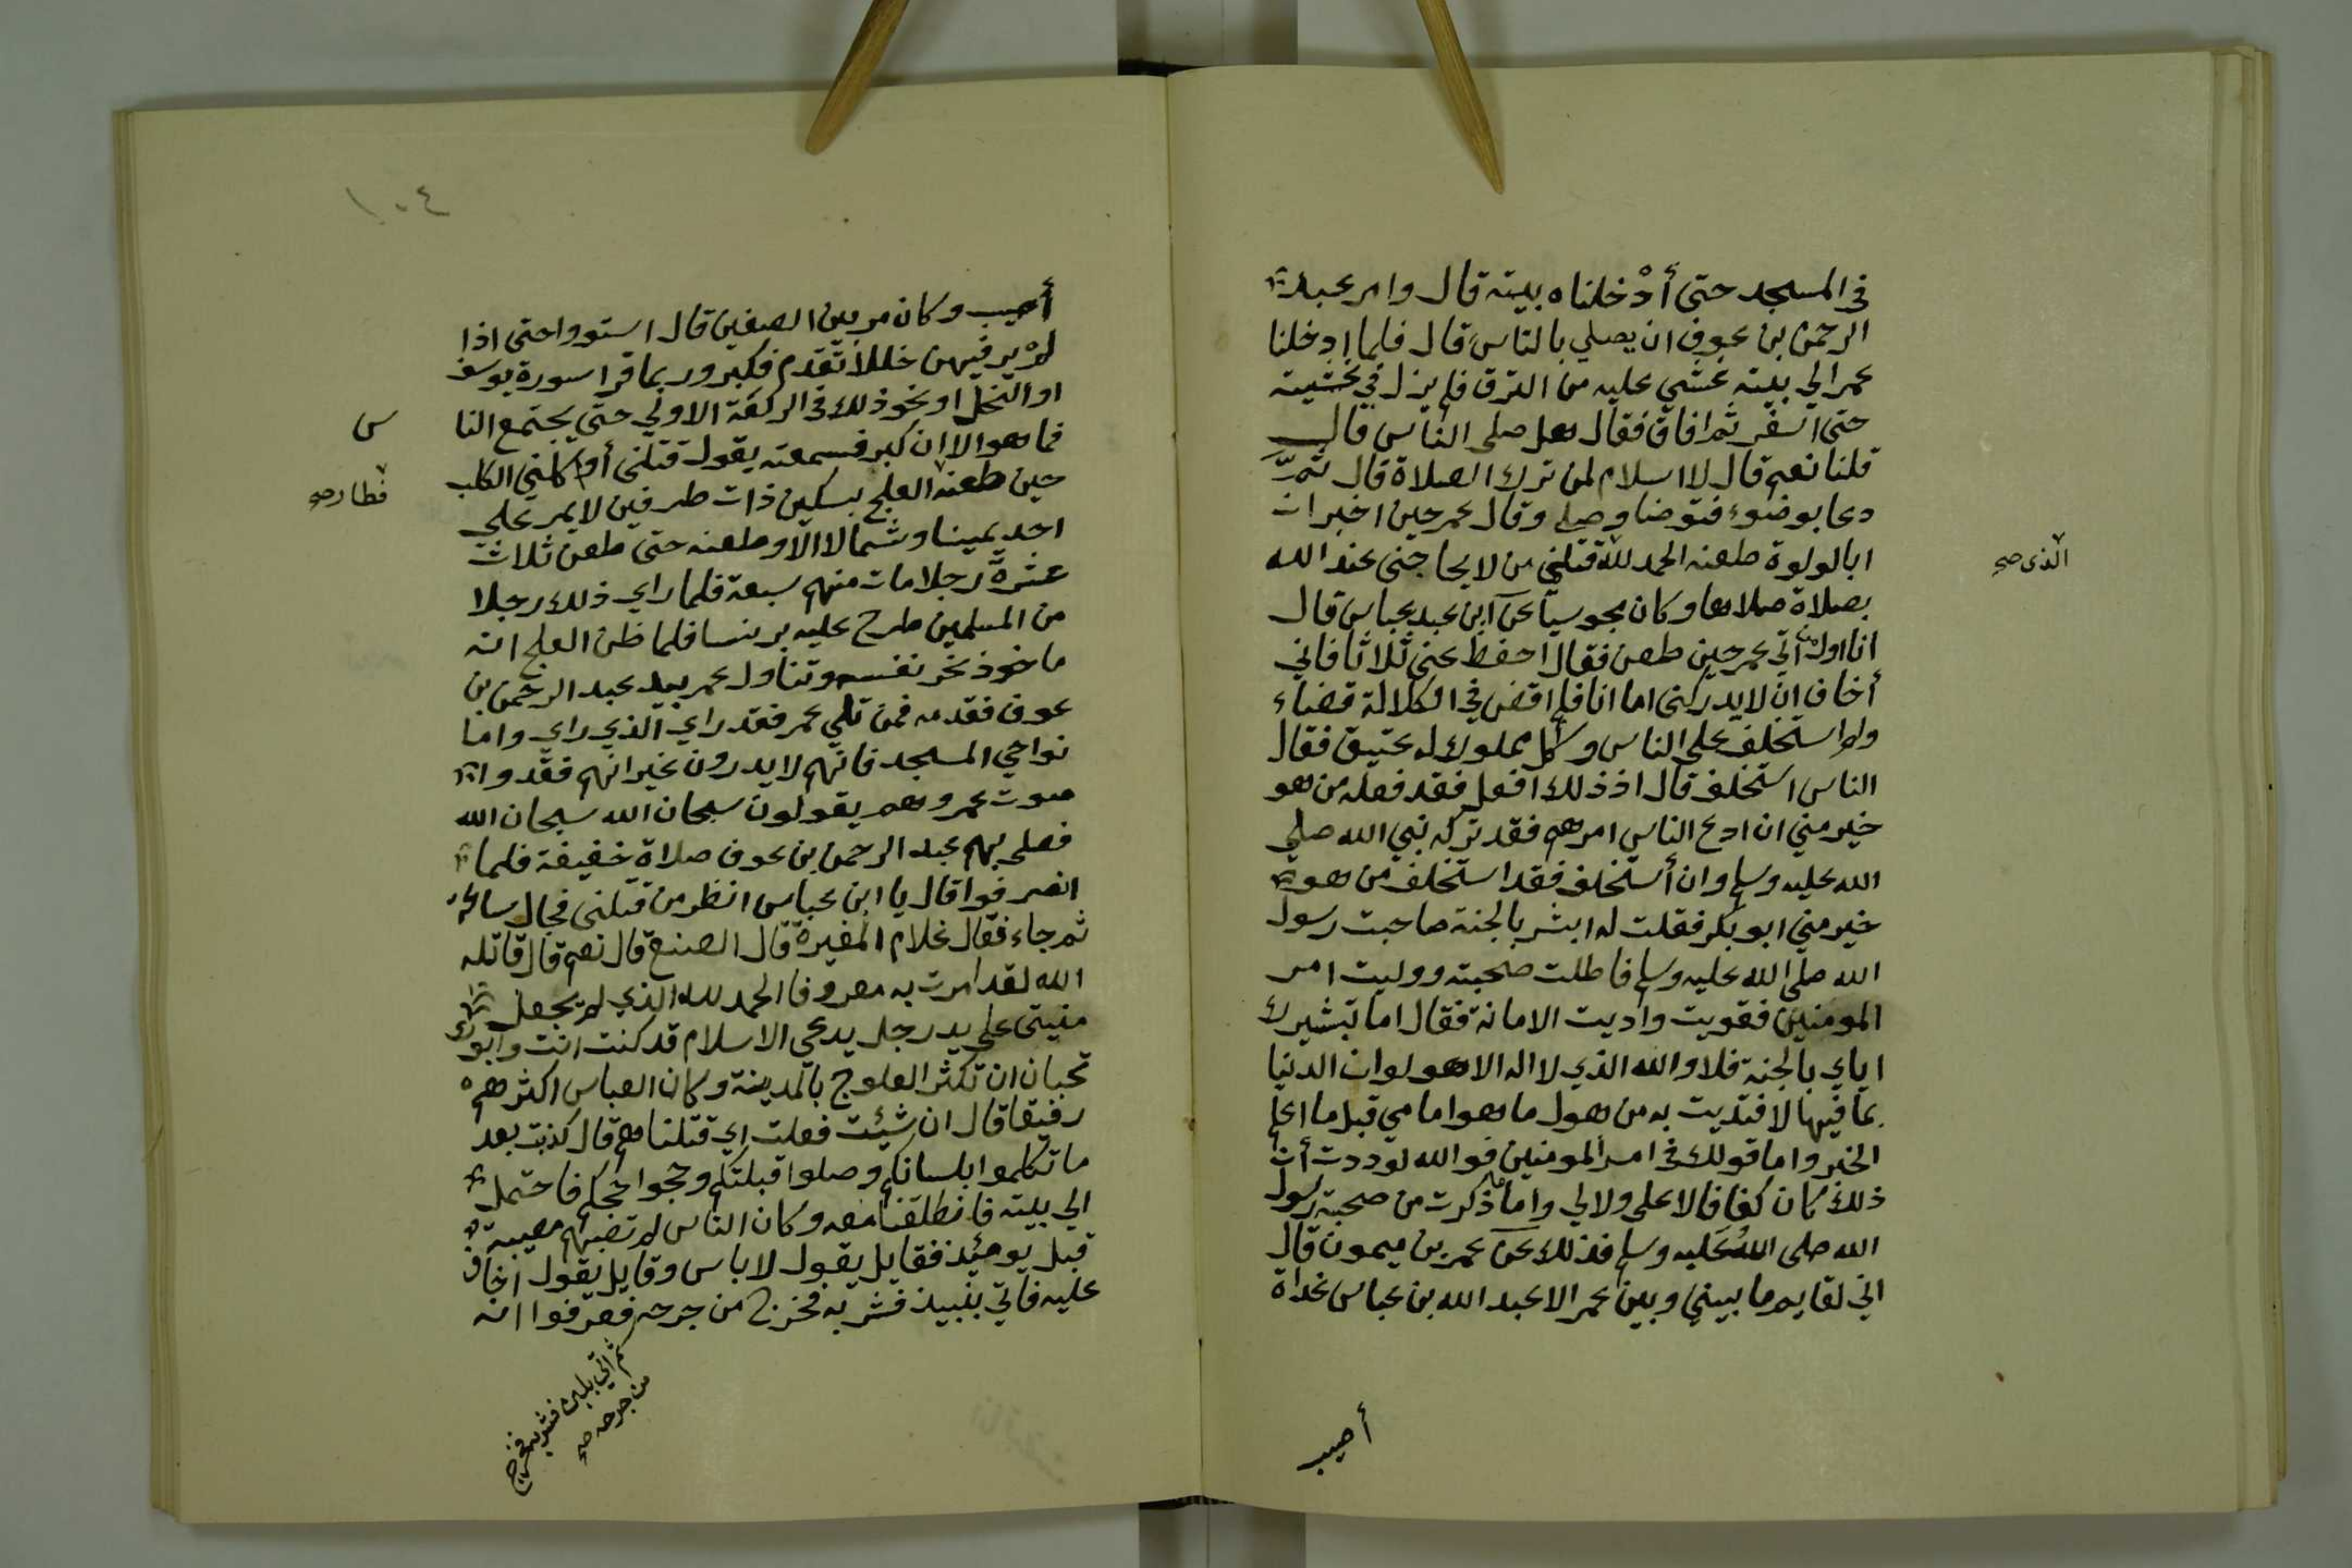 في المسجد حتى أدْخلناه بيته قال وامر عبد
الرحمن بن عوف ان يصلي بالناس قال فلما ادخلنا
عمر الي بيته غشي عليه من النزف فلم يزل في غشيته
حتى اسفر ثم افاق فقال هل صلى الناس قال
قلنا نعم قال لا اسلام لمن ترك الصلاة قال ثم
دعا بوضوء فتوضا وصلي وقال عمر حين اخبر ان
ابا لولوة طعنه الحمد لله قتلني من لا يحاجني عند الله
الذي صح
بصلاة صلاها وكان مجوسيا عن ابن عبد عباس قال
انا اول من أتي عمر حين طعن فقال احفظ عني ثلاثا فاني
أخاف ان لا يدركني اما انا فلم اقض في الكلالة قضاء
ولم استخلف على الناس وكل مملوك له عتيق فقال
الناس استخلف قال اذ ذلك افعل فقد فعله من هو
خير مني ان ادع الناس امرهم فقد تركه نبي الله صلي
الله عليه وسلم وان أستخلف فقد استخلف من هو
خير مني ابو بكر فقلت له ابشر بالجنة صاحبت رسول
الله صلى الله عليه وسلم فاطلت صحبته ووليت امر
المومنين فقويت وأديت الامانة فقال اما تبشيرك
اياي بالجنة فلا والله الذي لا اله الا هو لو ان الدنيا
بما فيها لافتديت به من هول ما هو امامي قبل ما اعلم
الخبر واما قولك في امر المومنين فوالله لوددت أن
ذلك كان كفافا لا على ولا لي واما ما ذكرت من صحبة رسول
الله صلى اللهُ عَليه وسلم فذلك عن عمر بن ميمون قال
اني لقايم ما بيني وبين عمر الا عبد الله بن عباس غداة
أصيب
١٠٤
أصيب وكان مر بين الصفين قال استووا حتى اذا
لمْ ير فيهن خللا تقدم فكبر وربما قرا سورة يوسف
او النحل او نحو ذلك في الركعة الاولي حتى يجتمع النا
س
فما هو الا ان كبر فسمعته يقول قتلني أو اكلني الكلب
حين طعنه العلج بسكين ذات طرفين لا يمر علي
فطار صح
احد يمينا وشمالا الا وطعنه حتى طعن ثلاث
عشرة رجلا مات منهم سبعة فلما راي ذلك رجلا
من المسلمين طرح عليه برنسا فلما ظن العلج انه
ماخوذ نحر نفسه وتناول عمر بيد عبد الرحمن بن
عوف فقدمه فمن تلي عمر فقد راي الذي راي واما
نواحي المسجد فانهم لا يدرون غير انهم فقدوا
صوت عمر وهم يقولون سبحان الله سبحان الله
فصلى بهم عبد الرحمن بن عوف صلاة خفيفة فلما
انصرفوا قال يا ابن عباس انظر من قتلني فجال ساعة
ثم جاء فقال غلام المغيرة قال الصنع قال نعم قال قاتله
الله لقد امرت به معروفا الحمد لله الذي لم يجعل
منيتي على يد رجل يدعى الاسلام قد كنت انت وابوك
تحبان ان تكثر العلوج بالمدينة وكان العباس اكثرهم
رفيقا قال ان شئت فعلت اي قتلناهم قال كذبت بعد
ما تكلموا بلسانكم وصلوا قبلتكم وحجوا حجكم فاحتمل
الي بيته فانطلقنا معه وكان الناس لم تصبهم مصيبة
قبل يومئذ فقايل يقول لا باس وقايل يقول اخاف
عليه فاتي بنبيذ فشربه فخرج من جرحه فعرفوا انه
ثم اتي بلبن فشربه فخرج
من جرحه صح